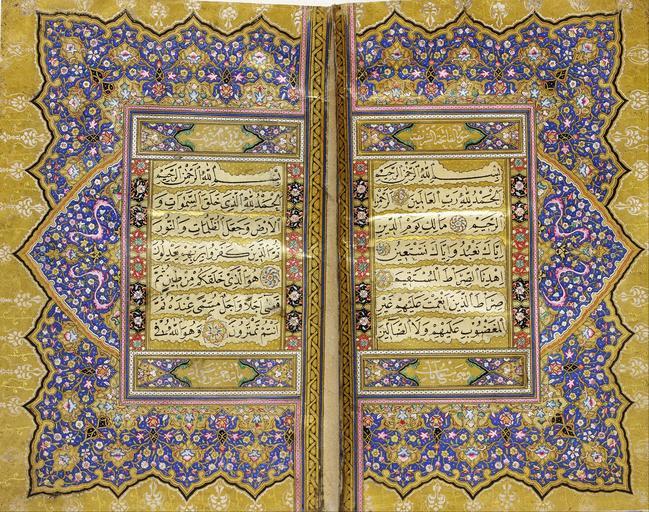 بسم الله الرحمن الرحيم
الحمد لله رب العالمين الرحمن
الرحيم مالك يوم الدين
اياك نعبد واياك نستعين
اهدنا الصراط المستقيم
صراط الذين انعمت عليهم غير
المغضوب عليهم ولا الضالين
بسم الله الرحمن الرحيم
الحمد لله الذي خلق السموات و
الارض وجعل الظلمات والنور
ثم الذين كفروا بربهم يعدلون
هو الذي خلقكم من طين ثم
قضى اجلا واجل مسمى عنده ثم
انتم تمترون وهو الله في